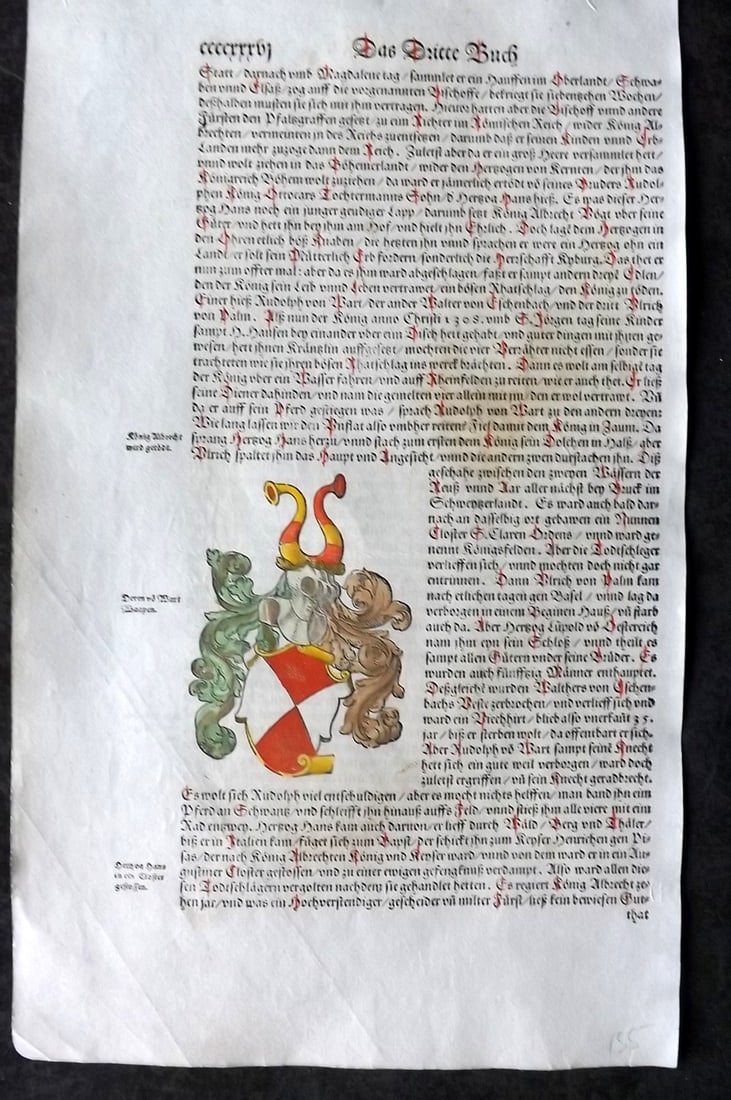 ccccxxxvj Das Dritte Buch
Statt / darnach vmb Magdalene tag / sammlet er ein Hauffen im Oberlandt / Schwa-
ben vnnd Elsaß / zog auff die vorgenannten Bischoffe / bekriegt sie siebentzehen Wochen /
deßhalben mußten sie sich mit jhm vertragen. Hiervor hatten aber die Bischoff vnnd andere
Fürsten den Pfaltzgraffen gesetzt / zu ein Richter im Römischen Reich / wider König Al-
brechten / vermeinten jn des Reichs zuentsetzen / darumb daß er seinen Kinden vnnd Erb-
Landen mehr zuzoge dann dem Reich. Zuletst aber da er ein groß Heere versammlet hett /
vnnd wolt ziehen in das Böhemerlandt / wider den Hertzogen von Kernten / der jhm das
Königreich Böhem wolt zuziehen / da ward er jämerlich ertödt võ seines Bruders Rudol-
phen König Ottocars Tochtermanns Sohn / d Hertzog Hans hieß. Es was dieser Her-
tzog Hans noch ein junger geudiger Lapp / darumb setzt König Albrecht Vögt vber seine
Güter / vnd hett jhn bey jhm am Hof / vnd hielt jhn Ehrlich. Doch lagẽ dem Hertzogen in
den Ohren etlich böß Knaben / die hetzten jhn vnnd sprachen er were ein Hertzog ohn ein
Land / er solt sein Mütterlich Erb fordern / sonderlich die Herrschafft Kyburg. Das thet er
nun zum offter mal: aber da es jhm ward abgeschlagen / faßt er sampt andern dreyẽ Edlen /
den der König sein Leib vnnd Leben vertrawet / ein bösen Rhatschlag / den König zu töden.
Einer hieß Rudolph von Wart / der ander Walter von Eschenbach / vnd der dritt Vlrich
von Palm. Alß nun der König anno Christi 1308. vmb S. Jörgen tag seine Kinder
sampt H. Hansen bey einander vber ein Tisch hett gehabt / vnd guter dingen mit jhnen ge-
wesen / hett jhnen Kräntzlin auffgesetzt / mochten die vier Verrähter nicht essen / sonder sie
trachteten wie sie jhren bösen Rhatschlag ins werck brächten. Dann es wolt am selbigẽ tag
der König vber ein Wasser fahren / vnd auff Rheinfelden zu reiten / wie er auch thet. Er ließ
seine Diener dahinden / vnd nam die gemelten vier allein mit jm / den er wol vertrawt. Vñ
da er auff sein Pferd gestiegen was / sprach Rudolph von Wart zu den andern dreyen:
Wie lang lassen wir den Vnflat also vmbher reiten? Fiel damit dem König in Zaum. Da
sprang Hertzog Hans herzu / vnnd stach zum ersten dem König sein Dolchen in Halß / aber
Vlrich spaltet jhm das Haupt vnd Angesicht / vnnd die andern zwen durstachen jhn. Diß
König Albrecht
wird getödt.
geschahe zwischen den zweyen Wässern der
Reuß vnnd Aar aller nächst bey Bruck im
Schweytzerlandt. Es ward auch bald dar-
nach an dasselbig ort gebawen ein Nunnen
Closter S. Claren Ordens / vnnd ward ge-
nennt Königsfelden. Aber die Todtschleger
verlieffen sich / vnnd mochten doch nicht gar
entrinnen. Dann Vlrich von Palm kam
nach etlichen tagen gen Basel / vnnd lag da
verborgen in einem Beginen Hauß / vñ starb
auch da. Aber Hertzog Lüpold võ Oesterreich
nam jhm eyn sein Schloß / vnnd theilt es
sampt allen Gütern vnder seine Brüder. Es
wurden auch fünfftzig Männer enthauptet.
Deßgleichẽ wurden Walthers von Eschen-
bachs Veste zerbrochen / vnd verlieff sich vnd
ward ein Viechhirt / blieb also vnerkañt 35.
jar / biß er sterben wolt / da offenbart er sich.
Aber Rudolph võ Wart sampt seinẽ Knecht
hett sich ein gute weil verborgen / ward doch
zuletst ergriffen / vñ sein Knecht geradbrecht.
Deren võ Wart
Wapen.
Es wolt sich Rudolph viel entschuldigen / aber es mocht nichts helffen / man band jhn eim
Pferd an Schwantz / vnd schleifft jhn hinauß auffs Feld / vnnd stieß jhm alle viere mit eim
Rad entzwey. Hertzog Hans kam auch daruon / er lieff durch Wäld / Berg vnd Thäler /
biß er in Italien kam / füget sich zum Bapst / der schickt jhn zum Keyser Henrichen gen Pi-
sas / der nach König Albrechten König vnd Keyser ward / vnnd von dem ward er in ein Au-
gustiner Closter gestossen / vnd zu einer ewigen gefengknuß verdampt. Also ward allen die-
sen Todtschlägern vergolten nachdem sie gehandlet hetten. Es regiert König Albrecht ze-
hen jar / vnd was ein Hochverstendiger / gescheider vñ milter Fürst / ließ kein bewiesen Gut-
that
Hertzog Hans
in ein Closter
gestossen.
155